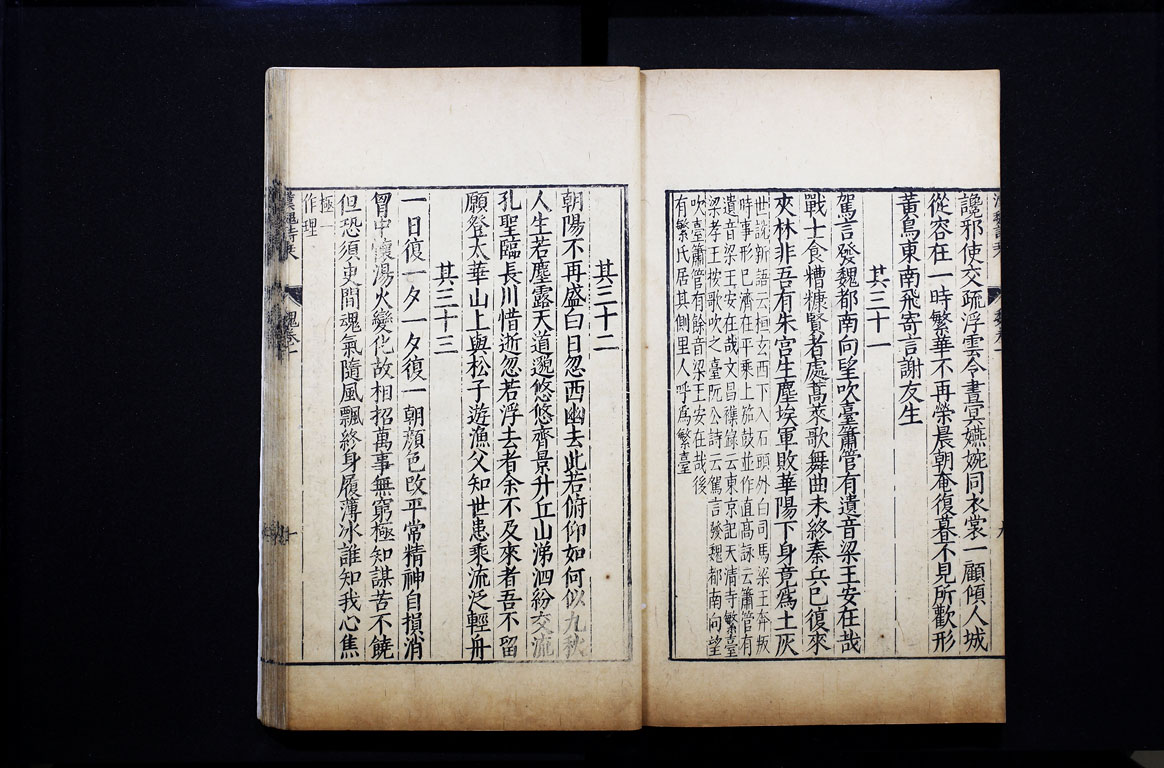 讒邪使交疏浮雲令晝冥嬿婉同衣裳一顧傾人城
從容在一時繁華不再榮晨朝奄復暮不見所歡形
黃鳥東南飛寄言謝友生
其三十一
駕言發魏都南向望吹臺簫管有遺音梁王安在哉
戰士食糟糠賢者處蒿萊歌舞曲未終秦兵已復來
夾林非吾有朱宫生塵埃軍敗華陽下身竟爲土灰
世說新語云桓玄西下入石頭外白司馬梁王奔叛
時事形已濟在平乘上笳鼓並作直高詠云簫管有
遺音梁王安在哉文昌雜錄云東京記天清寺繁臺
梁孝王按歌吹之臺阮公詩云駕言發魏都南向望
吹臺簫管有餘音梁王安在哉後
有繁氏居其側里人呼爲繁臺
其三十二
朝陽不再盛白日忽西幽去此若俯仰如何似九秋
人生若塵露天道邈悠悠齊景升丘山涕泗紛交流
孔聖臨長川惜逝忽若浮去者余不及來者吾不留
願登太華山上與松子遊漁父知世患乘流泛輕舟
其三十三
一日復一夕一夕復一朝顏色改平常精神自損消
胷中懷湯火變化故相招萬事無窮極知謀苦不饒
但恐須臾間魂氣隨風飄終身履薄冰誰知我心焦
極一
作理
漢魏詩
魏卷一